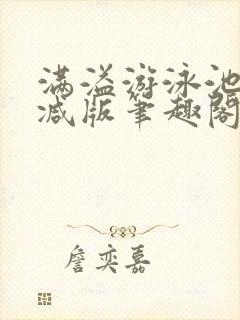 满溢游泳池
减版笔趣阁
詹奕嘉